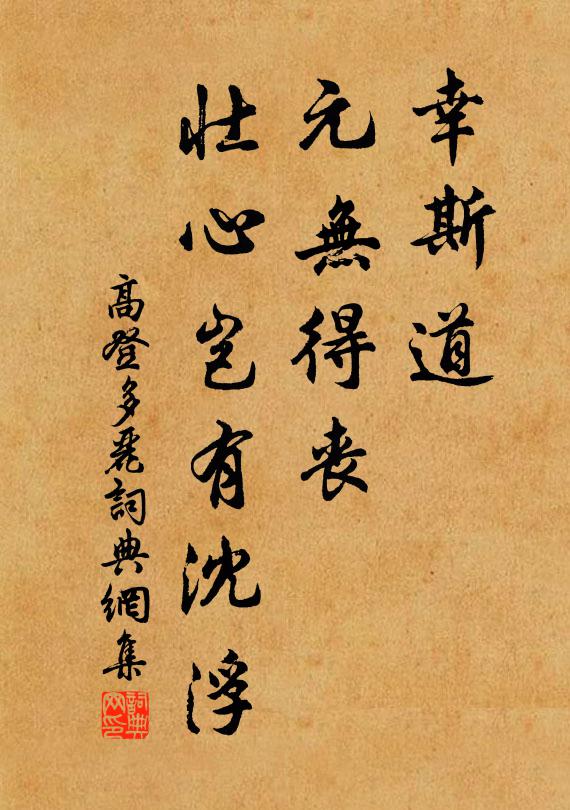 幸斯道
元無得喪
壯心豈有沈浮
高登多麗詞典網集
詞典网印